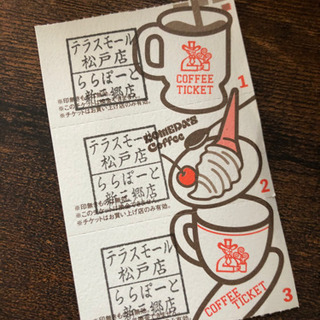 テラスモール
松戸店
ららぽーと
新三郷店
※印無きもの
※チケットはお買い上げ店のみ有効。
COFFEE
TICKET
1
テラスモール
松戸店
ららぽーと
新三郷店
※印無き
※チケットはお買い上げ店のみ有効。
KOMEDA'S
Coffee
2
テラスモール
松戸店
ららぽーと
店
※印無き
※チケットはお買い上げ店のみ有効。
COFFEE TICKET
3